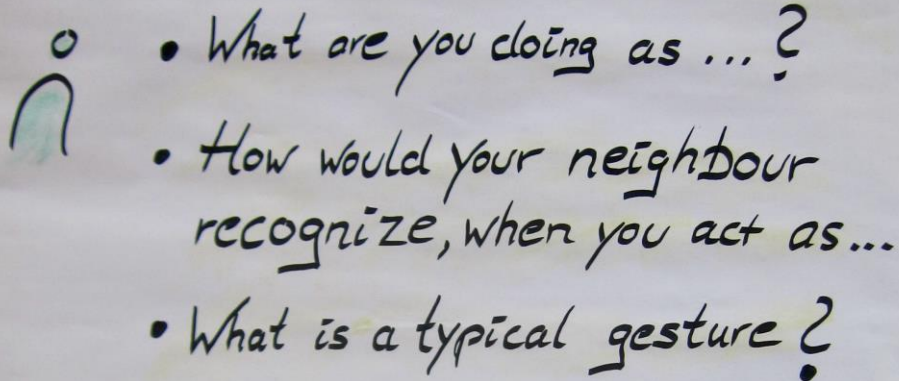 • What are you doing as ... ?
• How would your neighbour
recognize, when you act as...
• What is a typical gesture ?